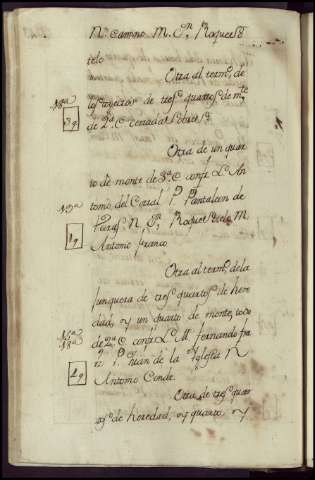 N. Camino M. Dn. Roque So
telo
Otra al termo. de
de tres quartos de mte.
de 2ª C. cerrada sobre si
3 q
Otra de un quar
to de monte de 3ª C. confa. L. An
tonio del Corral P. Pantaleon de
N. Dn. Roque Sotelo M.
Antonio franco
1 q
Otra al termo. de la
Junquera de tres quartos de here
dad, y un quarto de monte, todo
de 2ª C. confa. L. M. fernando fra
P. Juan de la Yglesia N.
Antonio Conde.
4 q
Otra de tres quar
tos de heredad, y quarto y